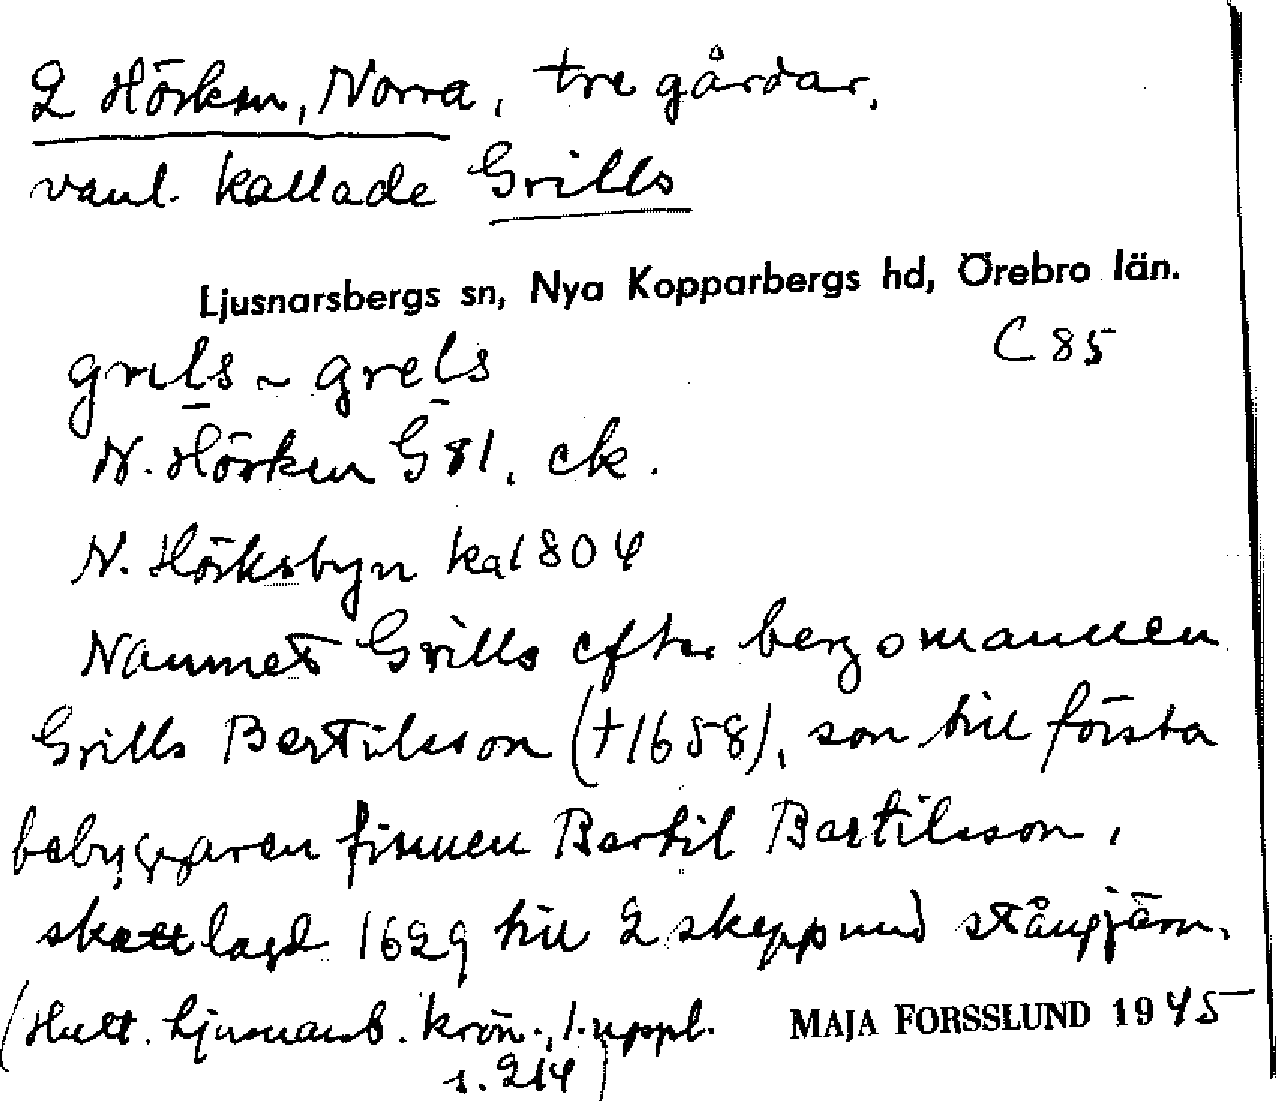 2 Hörken, Norra, tre gårdar,
vanl. kallade Grills
Ljusnarsbergs sn, Nya Kopparbergs hd, Örebro län.
C 85
grils ~ grels
N. Hörken G 81, ek.
N. Hörksbyn ka 1804
Namnet Grills efter bergsmannen
Grills Bertilsson (†1658), son till första
bebyggaren finnen Bertil Bertilsson,
skattlagd 1629 till 2 skeppund stångjärn.
(Hult. Ljusnarsb. krön., 1. uppl.
s. 214)
MAJA FORSSLUND 1945